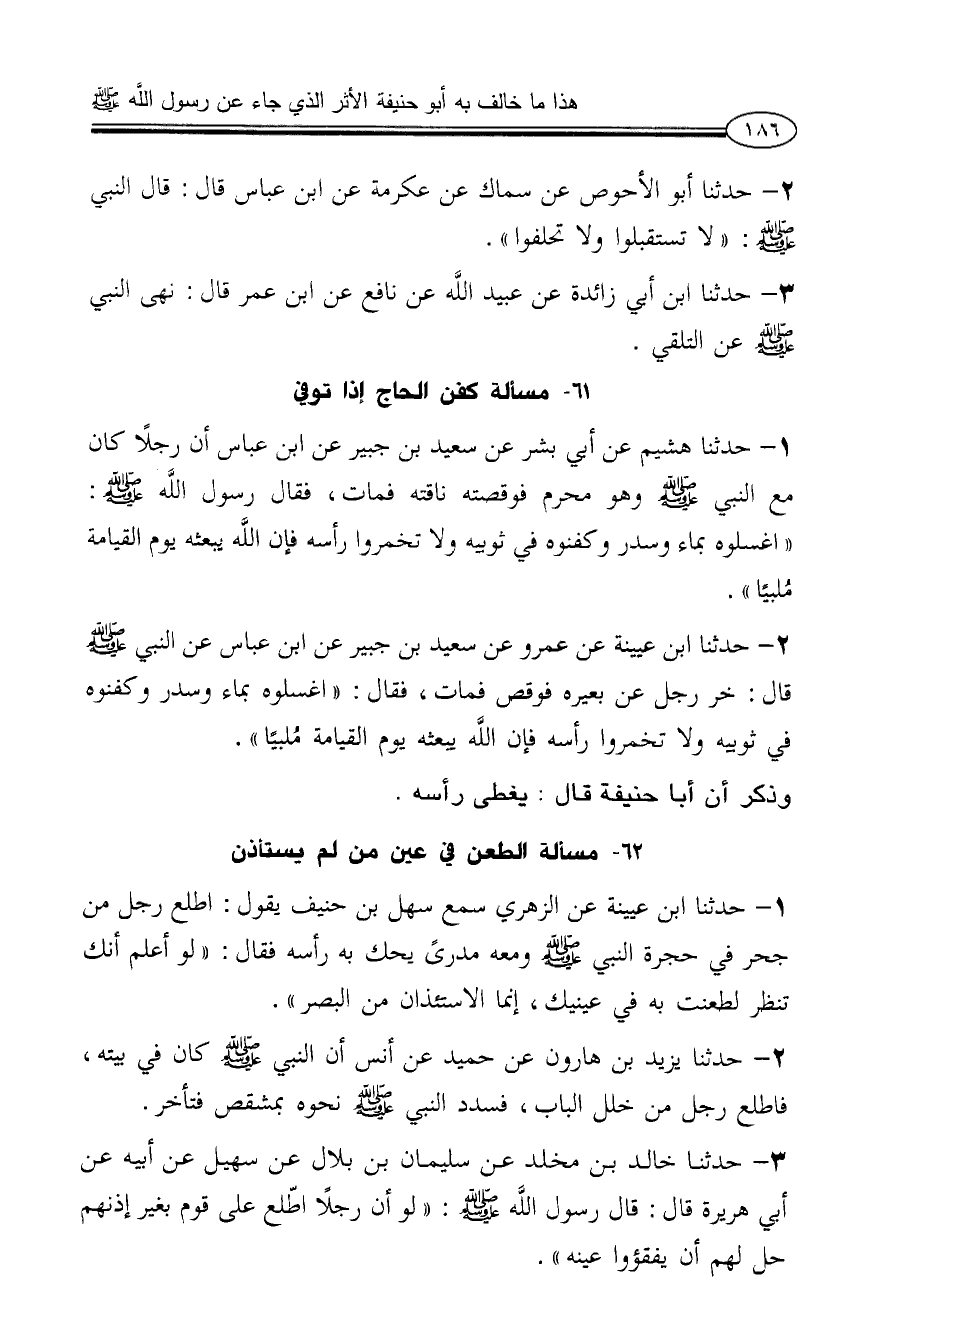 هذا ما خالف به أبو حنيفة الأثر الذي جاء عن رسول اللَّه ﷺ
١٨٦
٢- حدثنا أبو الأحوص عن سماك عن عكرمة عن ابن عباس قال : قال النبي
ﷺ : « لا تستقبلوا ولا تحلفوا » .
٣- حدثنا ابن أبي زائدة عن عبيد اللَّه عن نافع عن ابن عمر قال : نهى النبي
ﷺ عن التلقي .
٦١- مسألة كفن الحاج إذا توفي
١- حدثنا هشيم عن أبي بشر عن سعيد بن جبير عن ابن عباس أن رجلًا كان
مع النبي ﷺ وهو محرم فوقصته ناقته فمات ، فقال رسول اللَّه ﷺ :
« اغسلوه بماء وسدر وكفنوه في ثوبيه ولا تخمروا رأسه فإن اللَّه يبعثه يوم القيامة
مُلبيًا » .
٢- حدثنا ابن عيينة عن عمرو عن سعيد بن جبير عن ابن عباس عن النبي ﷺ
قال : خر رجل عن بعيره فوقص فمات ، فقال : « اغسلوه بماء وسدر وكفنوه
في ثوبيه ولا تخمروا رأسه فإن اللَّه يبعثه يوم القيامة مُلبيًا » .
وذكر أن أبا حنيفة قال : يغطى رأسه .
٦٢- مسألة الطعن في عين من لم يستأذن
١- حدثنا ابن عيينة عن الزهري سمع سهل بن حنيف يقول : اطلع رجل من
جحر في حجرة النبي ﷺ ومعه مدرىً يحك به رأسه فقال : « لو أعلم أنك
تنظر لطعنت به في عينيك ، إنما الاستئذان من البصر » .
٢- حدثنا يزيد بن هارون عن حميد عن أنس أن النبي ﷺ كان في بيته ،
فاطلع رجل من خلل الباب ، فسدد النبي ﷺ نحوه بمشقص فتأخر .
٣- حدثنا خالد بن مخلد عن سليمان بن بلال عن سهيل عن أبيه عن
أبي هريرة قال : قال رسول اللَّه ﷺ : « لو أن رجلًا اطّلع على قوم بغير إذنهم
حل لهم أن يفقؤوا عينه » .